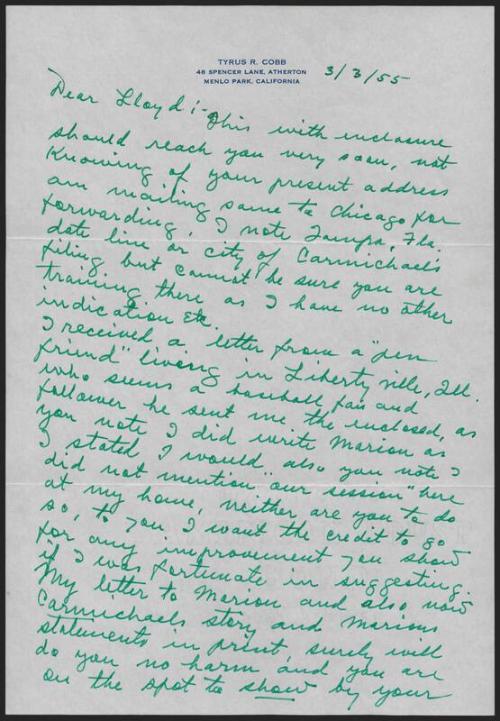 TYRUS R. COBB
48 SPENCER LANE, ATHERTON
MENLO PARK, CALIFORNIA
3/3/55
Dear Lloyd :-
This with enclosure
should reach you very soon, not
Knowing of your present address
am mailing same to Chicago for
forwarding, I note Tampa, Fla.
date line or city of Carmichaels
filing but cannot be sure you are
training there as I have no other
indication etc.
I received a letter from a "pen
friend" living in Libertyville, Ill.
who seems a baseball fan and
follower he sent me the enclosed, as
you note I did write Marion as
I stated I would, also you note I
did not mention "our session" here
at my home, neither are you to do
so, to you I want the credit to go
for any improvement you show
if I was fortunate in suggesting.
My letter to Marion and also now
Carmichaels story and Marions
statements in print, surely will
do you no harm and you are
on the spot to show by your